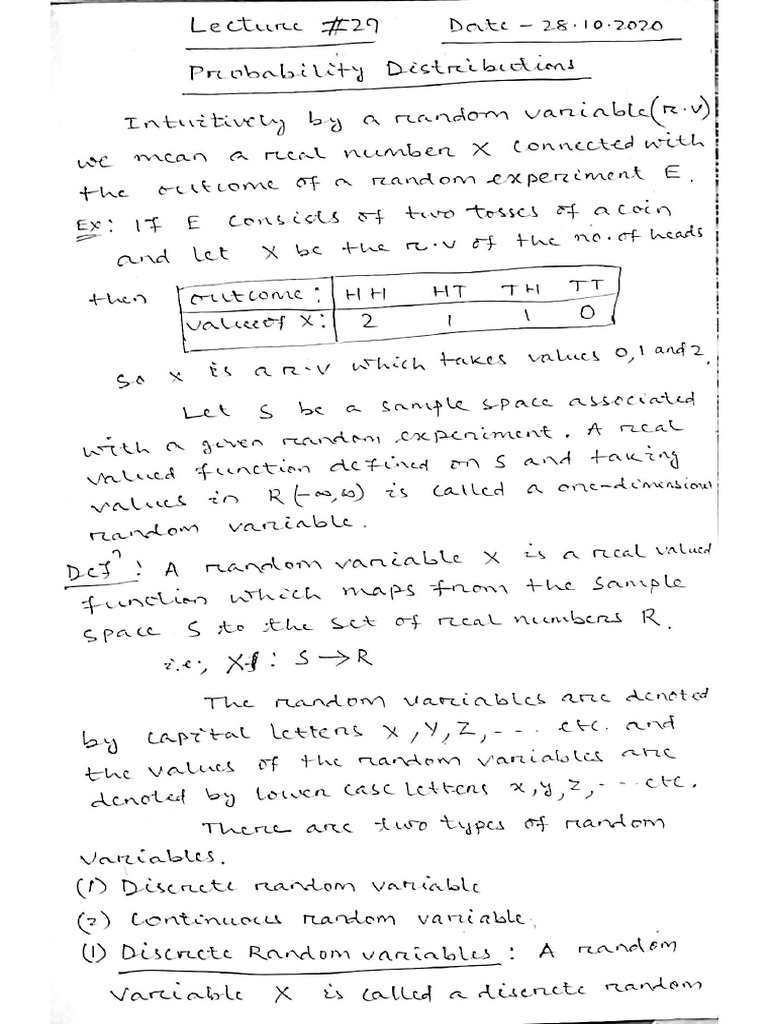 Lecture #29 Date - 28.10.2020
Probability Distributions
Intuitively by a random variable (r.v)
we mean a real number X connected with
the outcome of a random experiment E.
Ex: If E consists of two tosses of a coin
and let X be the r.v of the no. of heads
then outcome: HH HT TH TT
value of X: 2 1 1 0
So X is a r.v which takes values 0, 1 and 2.
Let S be a sample space associated
with a given random experiment. A real
valued function defined on S and taking
values in R(-∞,∞) is called a one-dimensional
random variable.
Defⁿ: A random variable X is a real valued
function which maps from the sample
space S to the set of real numbers R.
i.e:, X : S → R
The random variables are denoted
by capital letters X, Y, Z, ---. etc. and
the values of the random variables are
denoted by lower case letters x, y, z, ---etc.
There are two types of random
variables.
(1) Discrete random variable
(2) Continuous random variable.
(1) Discrete Random variables : A random
variable X is called a discrete random